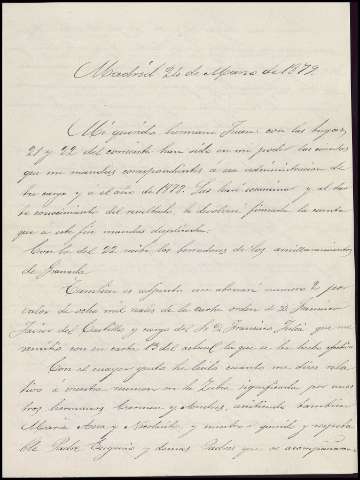 Madrid 24 de Marzo de 1879.
Mi querido hermano Juan: con las tuyas,
21 y 22 del corriente han sido en mi poder las cuentas
que me mandas correspondientes a esa administracion de
tu cargo y a el año de 1878. Las haré examinar y al dar
te conocimiento del resultado, te devolveré firmada la cuenta
que a este fin mandas duplicada.
Con la del 22 recibo los borradores de los amillaramientos
de Granada.
Tambien es adjunto un abonaré numero 2 por
valor de ocho mil reales de la orden d D. Francisco
Javier del Castillo y cargo del Sr D. Francisco que me
remitia con su carta 13 del actual la que se ha hecho efectiva
Con el mayor gusto he leido cuanto me dices rela
tivo á vuestra reunion en la Zubia significada por nues
tros hermanos Carmen y Andres, asistiendo tambien
Maria Ana y y nuestro querido y respeta
ble Padre Eugenio y demas Padres que os acompañaron